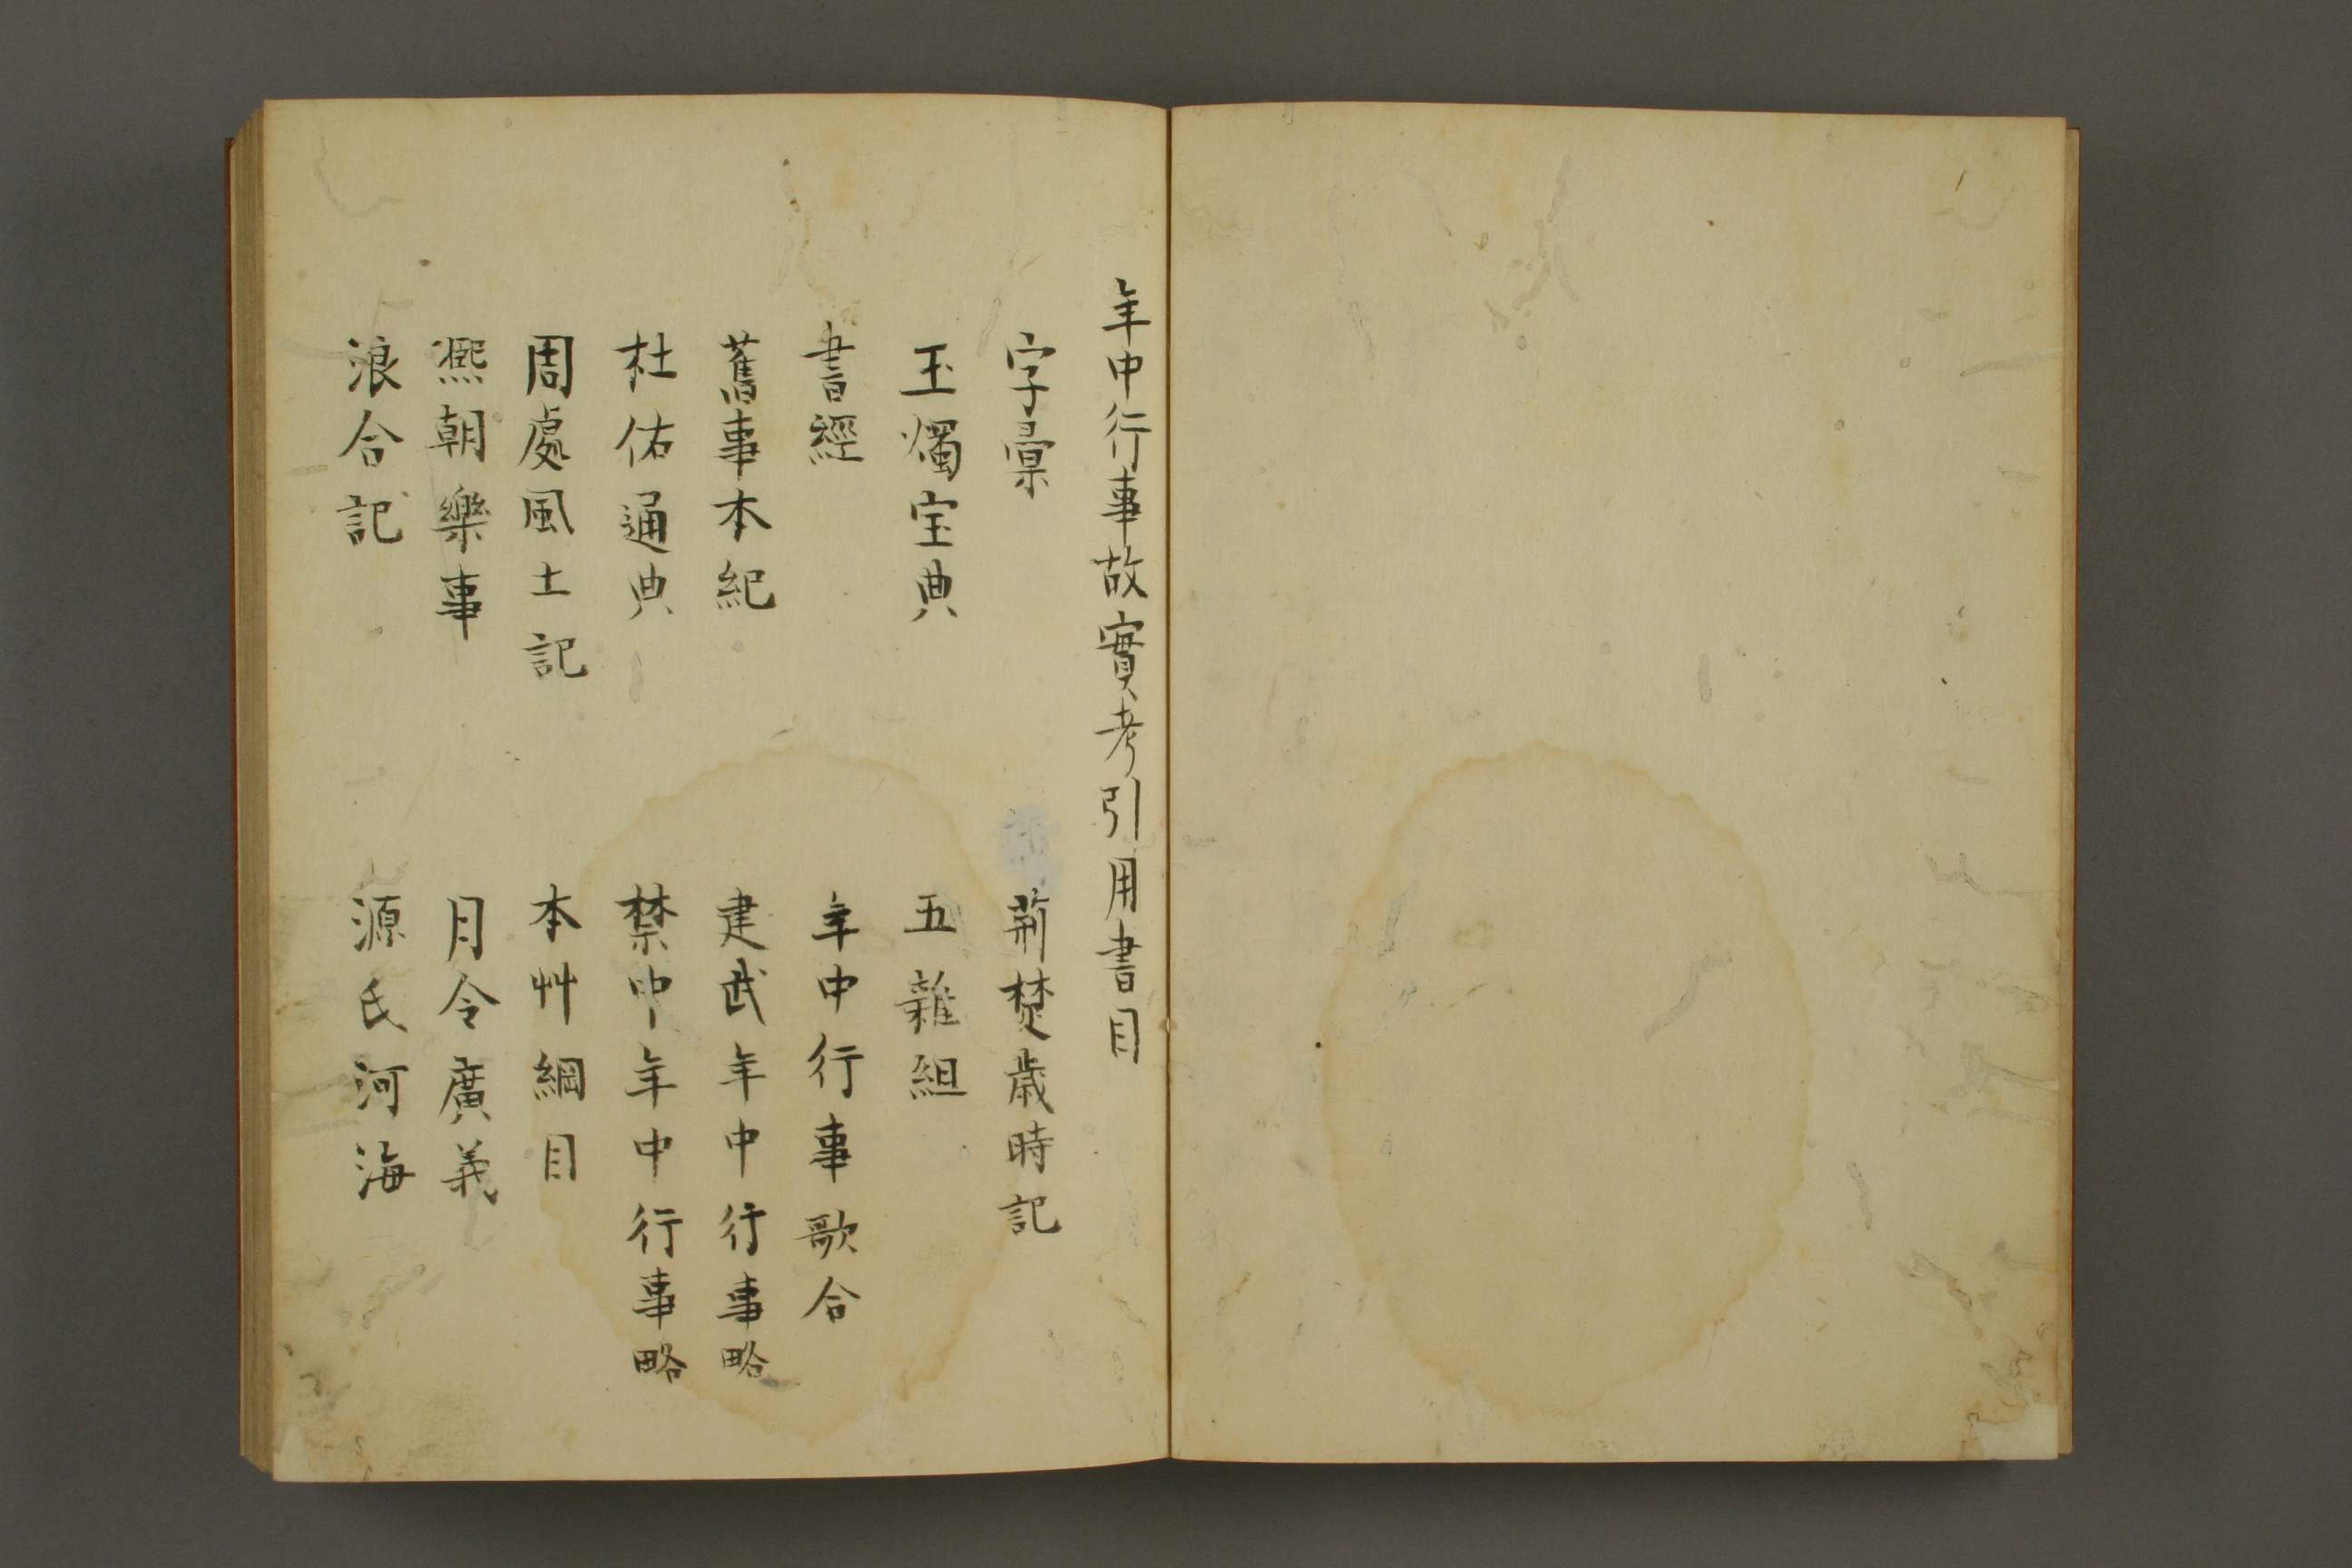 年中行事故實考引用書目
字彙　荊楚歲時記
玉燭宝典　五雜組
書經　年中行事歌合
舊事本紀　建武年中行事略
杜佑通典　禁中年中行事略
周處風土記　本艸綱目
熈朝樂事　月令廣義
浪合記　源氏河海